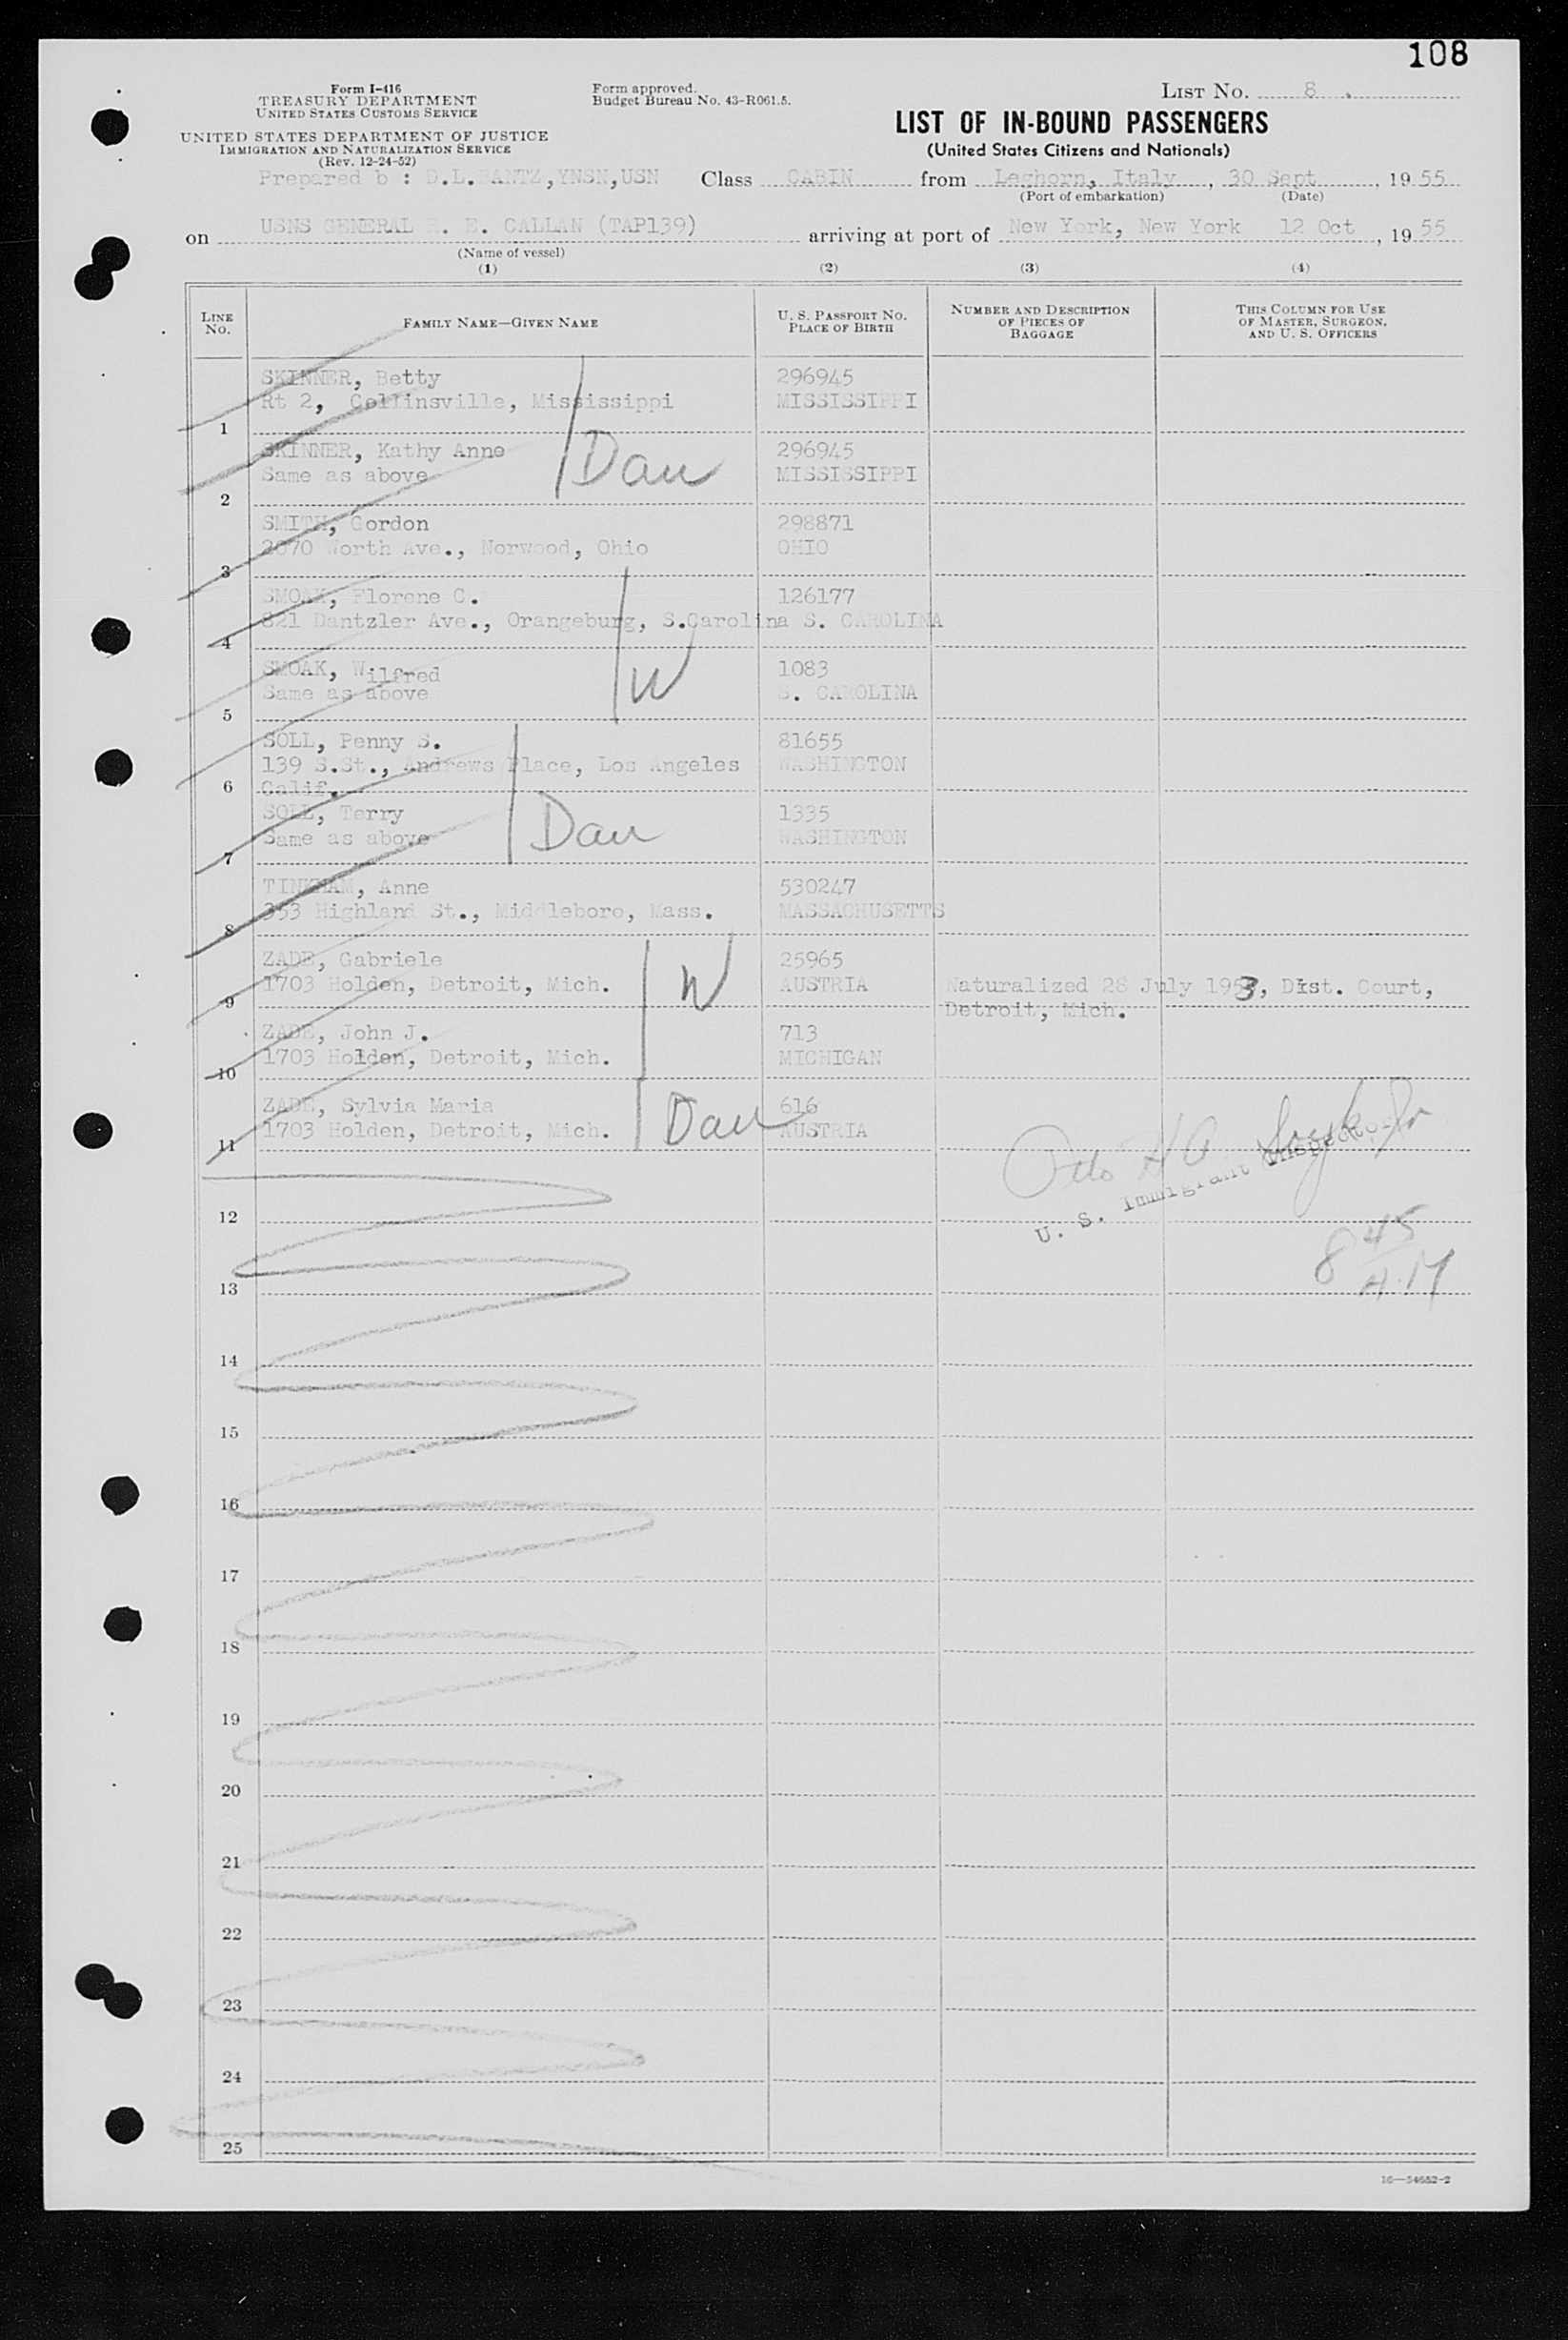 108
Form I-416
TREASURY DEPARTMENT
UNITED STATES CUSTOMS SERVICE
UNITED STATES DEPARTMENT OF JUSTICE
IMMIGRATION AND NATURALIZATION SERVICE
(Rev. 12-24-52)
Form approved.
Budget Bureau No. 43-R061.5.
LIST NO. 8
LIST OF IN-BOUND PASSENGERS
(United States Citizens and Nationals)
Prepared b : D.L. ,YNSN,USN Class CABIN from Leghorn, Italy, 30 Sept, 19 55
(Port of embarkation) (Date)
on USNS GENERAL . E. CALLAN (TAP139) arriving at port of New York, New York 12 Oct, 19 55
(Name of vessel)
(1) (2) (3) (4)
LINE NO. FAMILY NAME—GIVEN NAME U. S. PASSPORT NO. PLACE OF BIRTH NUMBER AND DESCRIPTION OF PIECES OF BAGGAGE THIS COLUMN FOR USE OF MASTER, SURGEON, AND U. S. OFFICERS
SKINNER, Betty 296945
Rt 2, Collinsville, Mississippi MISSISSIPPI
1
SKINNER, Kathy Anne 296945
Same as above Dau MISSISSIPPI
2
SMITH, Gordon 298871
2070 Worth Ave., Norwood, Ohio OHIO
3
SMOAK, Florene C. 126177
821 Dantzler Ave., Orangeburg, S.Carolina S. CAROLINA
4
SMOAK, Wilfred 1083
Same as above W S. CAROLINA
5
SOLL, Penny S. 81655
139 S.St., Andrews Place, Los Angeles WASHINGTON
6 Calif.
SOLL, Terry 1335
Same as above Dau WASHINGTON
7
TINKHAM, Anne 530247
353 Highland St., Middleboro, Mass. MASSACHUSETTS
8
ZADE, Gabriele 25965
1703 Holden, Detroit, Mich. W AUSTRIA Naturalized 28 July 1953, Dist. Court,
9 Detroit, Mich.
ZADE, John J. 713
1703 Holden, Detroit, Mich. MICHIGAN
10
ZADE, Sylvia Maria 616
1703 Holden, Detroit, Mich. Dau AUSTRIA
11
U. S. Immigrant Inspector
12
8 45 A.M
13
14
15
16
17
18
19
20
21
22
23
24
25
16—54652-2